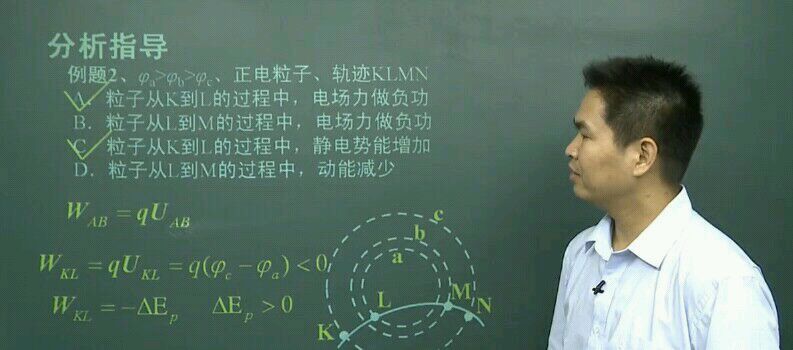 分析指导
例题2、φa>φb>φc、正电粒子、轨迹KLMN
A. 粒子从K到L的过程中，电场力做负功
B. 粒子从L到M的过程中，电场力做负功
C. 粒子从K到L的过程中，静电势能增加
D. 粒子从L到M的过程中，动能减少
W_AB = qU_AB
W_KL = qU_KL = q(φc − φa) < 0
W_KL = −ΔE_p ΔE_p > 0
c
b
a
L
M
N
K